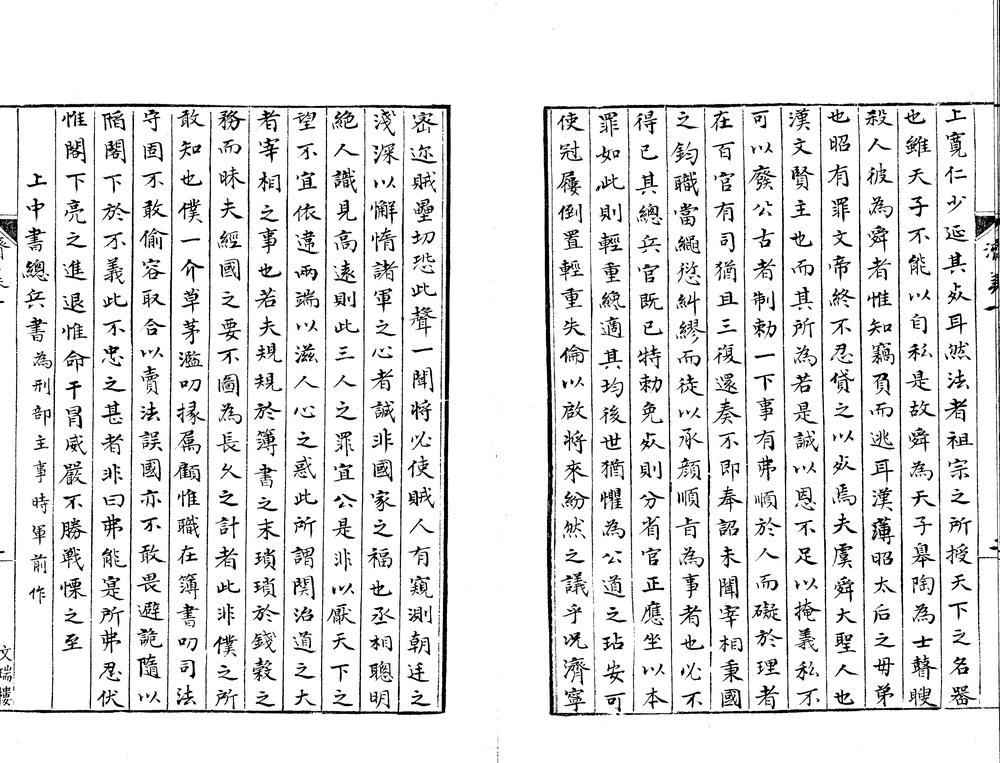 上寛仁少延其死耳然法者祖宗之所授天下之名器
也雖天子不能以自私是故舜為天子皋陶為士瞽瞍
殺人彼為舜者惟知竊負而逃耳漢薄昭太后之毋弟
也昭有罪文帝終不忍貸之以死焉夫虞舜大聖人也
漢文賢主也而其所為若是誠以恩不足以掩義私不
可以廢公古者制勅一下事有弗順於人而礙於理者
在百官有司猶且三復還奏不即奉詔未聞宰相秉國
之鈞職當繩愆糾繆而徒以承顔順㫖為事者也必不
得已其總兵官既已特勅免死則分省官正應坐以本
罪如此則輕重緫適其均後世猶懼為公道之玷安可
使冠屨倒置輕重失倫以啟將來紛然之議乎况濟寧
密迩賊壘切恐此聲一聞將必使賊人有窺測朝廷之
淺深以懈惰諸軍之心者誠非國家之福也丞相聰明
絶人識見高遠則此三人之罪宜公是非以厭天下之
望不宜依違兩端以滋人心之惑此所謂関治道之大
者宰相之事也若夫規規於簿書之末瑣瑣於錢穀之
務而昧夫經國之要不圖為長久之計者此非僕之所
敢知也僕一介草茅濫叨掾属顧惟職在簿書叨司法
守固不敢偷容取合以賣法誤國亦不敢畏避詭隨以
陷閣下於不義此不忠之甚者非曰弗能寔所弗忍伏
惟閣下亮之進退惟命干冒威嚴不勝戰慄之至
上中書總兵書為刑部主事時軍前作
文瑞樓